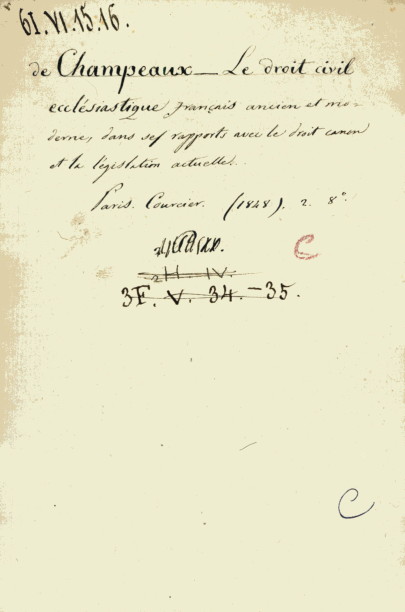 61.VI.15.16.
de Champeaux _ Le droit civil
ecclésiastique français ancien et mo-
derne, dans ses rapports avec le droit canon
et la législation actuelle.
Paris. Courcier. (1848). 2. 8°.
C
2 H IV.
3F. V. 34.-35.
C